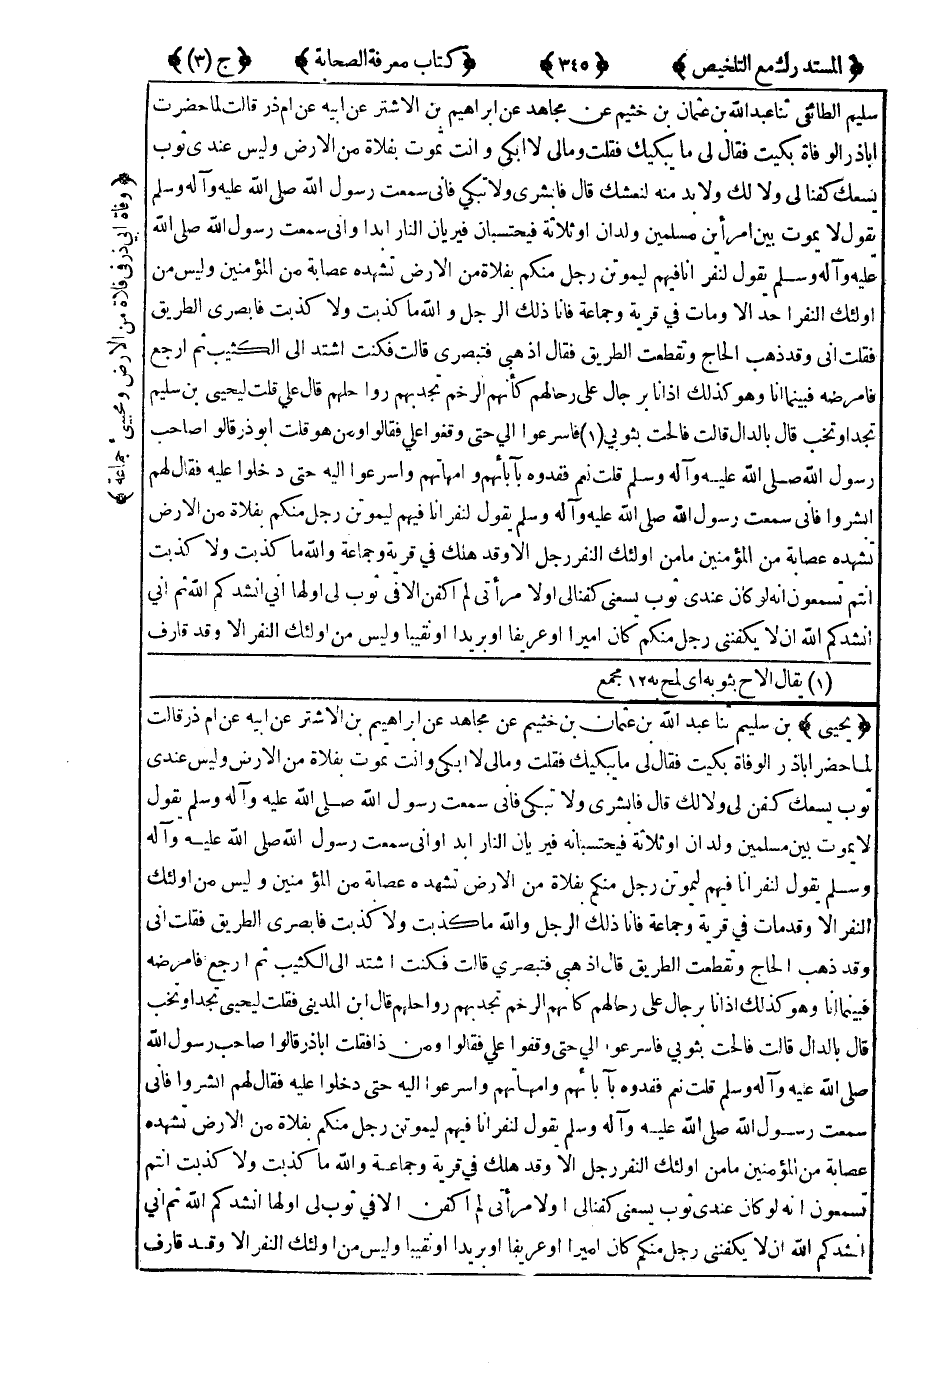 ﴿ المستدرك مع التلخيص ﴾ ﴿ ٣٤٥ ﴾ ﴿ كتاب معرفة الصحابة ﴾ ﴿ ج (٣) ﴾
سليم الطائفي ثنا عبد الله بن عثمان بن خثيم عن مجاهد عن ابراهيم بن الاشتر عن ابيه عن ام ذر قالت لما حضرت
اباذر الوفاة بكيت فقال لى ما يبكيك فقلت ومالى لا ابكي و انت تموت بفلاة من الارض وليس عندى ثوب
يسعك كفنا لى ولا لك ولابد منه لنعشك قال فابشرى ولا تبكي فانى سمعت رسول الله صلى الله عليه وآله وسلم
يقول لا يموت بين امرأين مسلمين ولدان اوثلاثة فيحتسبان فيريان النار ابدا وانى سمعت رسول الله صلى الله
عليه وآله وسلم يقول لنفر انا فيهم ليموتن رجل منكم بفلاة من الارض تشهده عصابة من المؤمنين وليس من
اولئك النفر احد الا ومات في قرية وجماعة فانا ذلك الرجل و الله ما كذبت ولا كذبت فابصرى الطريق
فقلت انى وقد ذهب الحاج وتقطعت الطريق فقال اذهبي فتبصرى قالت فكنت اشتد الى الكثيب ثم ارجع
فامرضه فبينما انا وهو كذلك اذا نا برجال على رحالهم كأنهم الرخم تجد بهم رواحلهم قال علي قلت ليحيى بن سليم
تجد او تخب قال بالدال قالت فالحت بثوبي (١) فاسرعوا الي حتى وقفوا علي فقالوا ومن هو قلت ابو ذر قالو اصاحب
رسول الله صلى الله عليه وآله وسلم قلت نعم ففدوه بآبائهم و امهاتهم واسرعوا اليه حتى دخلوا عليه فقال لهم
ابشروا فانى سمعت رسول الله صلى الله عليه وآله وسلم يقول لنفر انا فيهم ليموتن رجل منكم بفلاة من الارض
تشهده عصابة من المؤمنين مامن اولئك النفر رجل الا وقد هلك في قرية وجماعة والله ما كذبت ولا كذبت
انتم تسمعون انه لو كان عندى ثوب يسعني كفنالى اولا مرأتى لم اكفن الا فى ثوب لى اولها اني انشدكم الله ثم اني
انشدكم الله ان لا يكفننى رجل منكم كان اميرا او عريفا او بريدا او نقيبا وليس من اولئك النفر الا وقد قارف
(١) يقال الاح بثوبه اى لمح به ١٢ مجمع
﴿ يحيى ﴾ بن سليم ثنا عبد الله بن عثمان بن خثيم عن مجاهد عن ابراهيم بن الاشتر عن ابيه عن ام ذر قالت
لما حضر اباذر الوفاة بكيت فقال لى ما يبكيك فقلت ومالى لا ابكي وانت تموت بفلاة من الارض وليس عندى
ثوب يسعك كفن لى ولا لك قال فابشرى ولا تبكي فانى سمعت رسول الله صلى الله عليه وآله وسلم يقول
لا يموت بين مسلمين ولدان اوثلاثة فيحتسبانه فيريان النار ابد اوانى سمعت رسول الله صلى الله عليه وآله
وسلم يقول لنفر انا فيهم ليموتن رجل منكم بفلاة من الارض تشهده عصابة من المؤمنين وليس من اولئك
النفر الا وقد مات في قرية وجماعة فانا ذلك الرجل والله ما كذبت ولا كذبت فابصرى الطريق فقلت انى
وقد ذهب الحاج وتقطعت الطريق قال اذهبي فتبصري قالت فكنت اشتد الى الكثيب ثم ارجع فامرضه
فبينما انا وهو كذلك اذا نا برجال على رحالهم كأنهم الرخم تجد بهم رواحلهم قال ابن المديني فقلت ليحيى تجد او تخب
قال بالدال قالت فالحت بثوبي فاسرعوا الي حتى وقفوا علي فقالوا ومن ذا فقلت اباذر قالوا صاحب رسول الله
صلى الله عليه وآله وسلم قلت نعم ففدوه بآبائهم وامهاتهم واسرعوا اليه حتى دخلوا عليه فقال لهم ابشروا فانى
سمعت رسول الله صلى الله عليه وآله وسلم يقول لنفر انا فيهم ليموتن رجل منكم بفلاة من الارض تشهده
عصابة من المؤمنين مامن اولئك النفر رجل الا وقد هلك في قرية وجماعة والله ما كذبت ولا كذبت انتم
تسمعون انه لو كان عندى ثوب يسعني كفنالى اولا مرأتى لم اكفن الا في ثوب لى اولها انشدكم الله ثم اني
انشدكم الله ان لا يكفننى رجل منكم كان اميرا او عريفا او بريدا او نقيبا وليس من اولئك النفر الا وقد قارف
﴿ وفاة ابي ذر فى فلاة من الارض ومجيئ جماعة ﴾